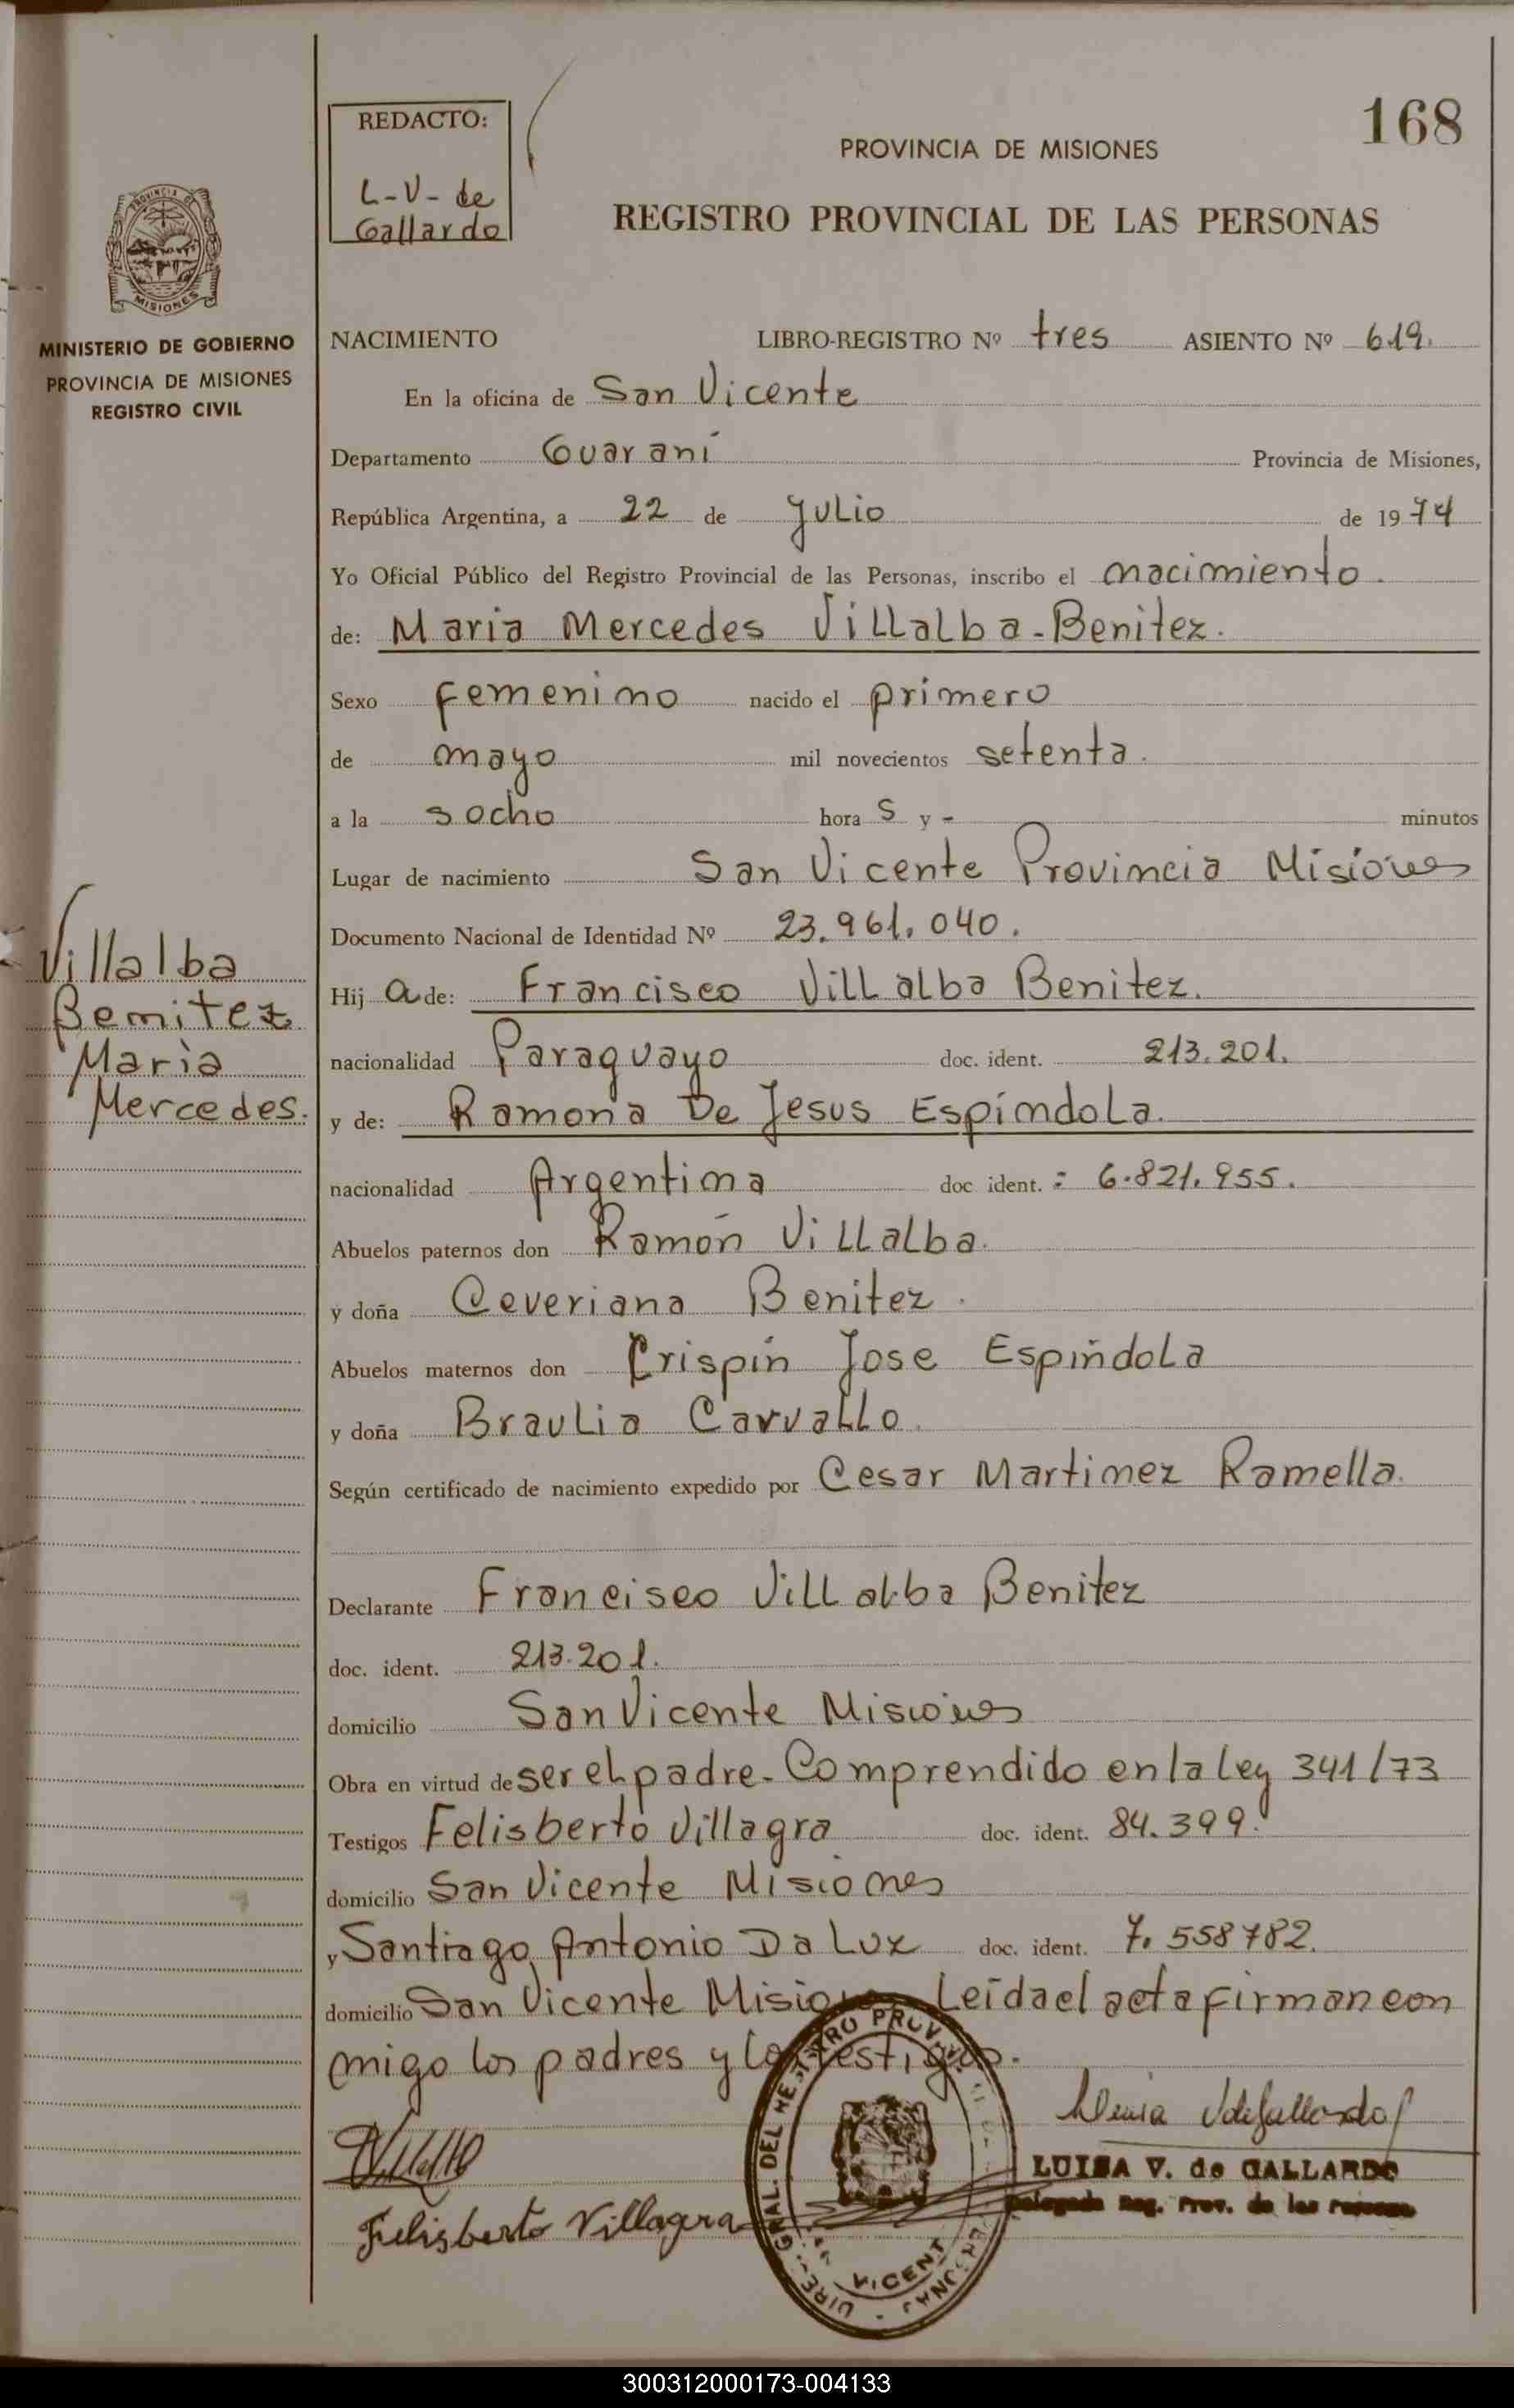 168
REDACTO:
L-V- de
Gallardo
PROVINCIA DE MISIONES
REGISTRO PROVINCIAL DE LAS PERSONAS
PROVINCIA DE
MISIONES
MINISTERIO DE GOBIERNO
PROVINCIA DE MISIONES
REGISTRO CIVIL
NACIMIENTO LIBRO-REGISTRO Nº tres ASIENTO Nº 619.
En la oficina de San Vicente
Departamento Guaraní Provincia de Misiones,
República Argentina, a 22 de Julio de 1974
Yo Oficial Público del Registro Provincial de las Personas, inscribo el nacimiento.
de: Maria Mercedes Villalba-Benitez.
Sexo femenino nacido el primero
de mayo mil novecientos setenta.
a la s ocho hora s y - minutos
Lugar de nacimiento San Vicente Provincia Misiones
Documento Nacional de Identidad Nº 23.961.040.
Villalba
Benitez
Maria
Mercedes.
Hij a de: Francisco Villalba Benitez.
nacionalidad Paraguayo doc. ident. 213.201.
y de: Ramona De Jesus Espíndola.
nacionalidad Argentina doc. ident. : 6.821.955.
Abuelos paternos don Ramón Villalba.
y doña Ceveriana Benitez.
Abuelos maternos don Crispín Jose Espíndola
y doña Braulia Carvallo.
Según certificado de nacimiento expedido por Cesar Martinez Ramella.
Declarante Francisco Villalba Benitez
doc. ident. 213.201.
domicilio San Vicente Misiones
Obra en virtud de ser el padre. Comprendido en la Ley 341/73
Testigos Felisberto Villagra doc. ident. 84.399.
domicilio San Vicente Misiones
y Santiago Antonio Da Luz doc. ident. 7.558782.
domicilio San Vicente Misiones Leída el acta firman con
migo los padres y los testigos.
Felisberto Villagra
LUISA V. de GALLARDO
Delegada Reg. Prov. de las Personas
300312000173-004133